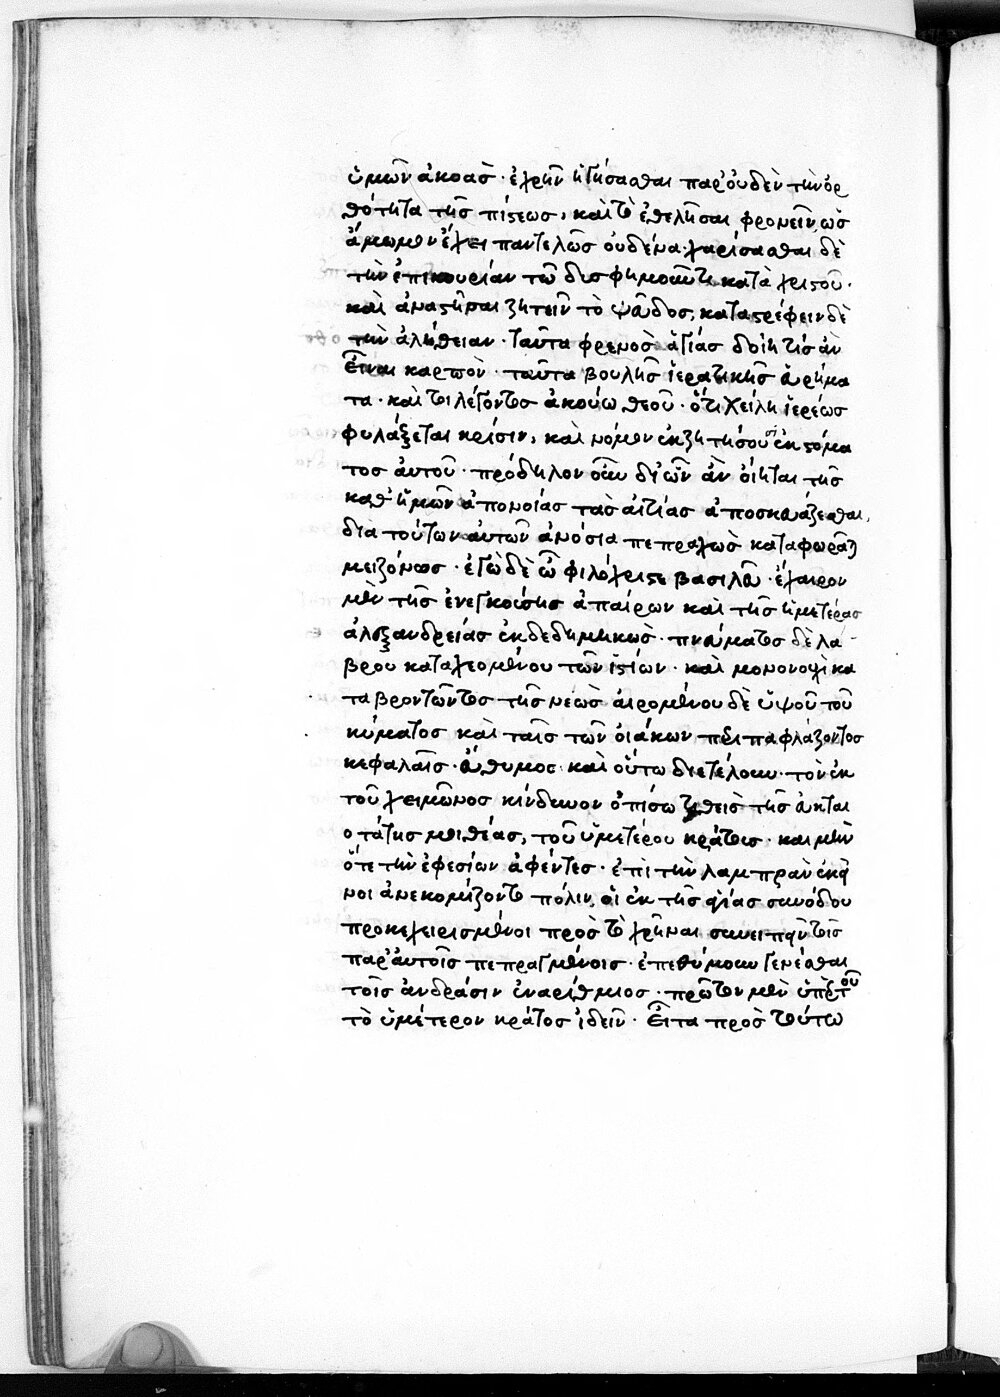 ὑμῶν ἀκοάς· ἐχρῆν ἡγήσασθαι παρ' οὐδὲν τὴν ὀρ
θότητα τῆς πίστεως, καὶ τὸ ἐθελῆσαι φρονεῖν, ὡς
ἄμωμον ἔχει παντελῶς οὐδένα· χαρίσασθαι δὲ
τὴν ἐπικουρίαν τῶ δυσφημοῦντι κατὰ χριστοῦ·
καὶ ἀναστῆσαι ζητεῖν τὸ ψεῦδος, καταστρέφειν δὲ
τὴν ἀλήθειαν· ταῦτα φρενὸς ἁγίας δοίη τίς ἂν
εἶναι καρπὸν· ταῦτα βουλῆς ἱερατικῆς εὑρήμα
τα· καὶ τοι λέγοντος ἀκούω θεοῦ· ὅτι χείλη ἱερέως
φυλάξεται κρίσιν, καὶ νόμον ἐκζητήσουσιν ἐκ στόμα
τος αὐτοῦ· πρόδηλον οὖν δι' ὧν ἂν οἴηται τῆς
καθ' ἡμῶν ἀπονοίας τὰς αἰτίας ἀποσκευάζεσθαι,
διὰ τούτων αὐτῶν ἀνόσια πεπραχὼς καταφωρᾶται
μειζόνως· ἐγὼ δὲ ὦ φιλόχριστε βασιλεῦ· ἔχαιρον
μὲν τῆς ἐνεγκούσης ἀπαίρων καὶ τῆς ἡμετέρας
ἀλεξανδρείας ἐκδεδημηκὼς· πνεύματος δὲ λά
βρου καταχεομένου τῶν ἱστίων· καὶ μονονουχὶ κα
ταβροντῶντος τῆς νεὼς αἱρομένου δὲ ὑψοῦ τοῦ
κύματος καὶ ταῖς τῶν οἰάκων περιπαφλάζοντος
κεφαλαῖς· εὔθυμος καὶ οὕτω διετέλουν· τὸν ἐκ
τοῦ χειμῶνος κίνδυνον ὀπίσω τιθεὶς τῆς εὐκται
οτάτης μοι θέας, τοῦ ὑμετέρου κράτους· καὶ μὴν
ὅτε τὴν ἐφεσίων ἀφέντες· ἐπὶ τὴν λαμπρὰν ἐκεῖ
νοι ἀνεκομίζοντο πόλιν, οἱ ἐκ τῆς ἁγίας συνόδου
προκεχειρισμένοι πρὸς τὸ χρῆναι συνειπεῖν τοῖς
παρ' αὐτοῖς πεπραγμένοις· ἐπεθύμουν γενέσθαι
τοῖς ἀνδράσιν ἐναρίθμιος· πρῶτον μὲν ὑπὲρ τοῦ
τὸ ὑμέτερον κράτος ἰδεῖν· εἶτα πρὸς τούτω